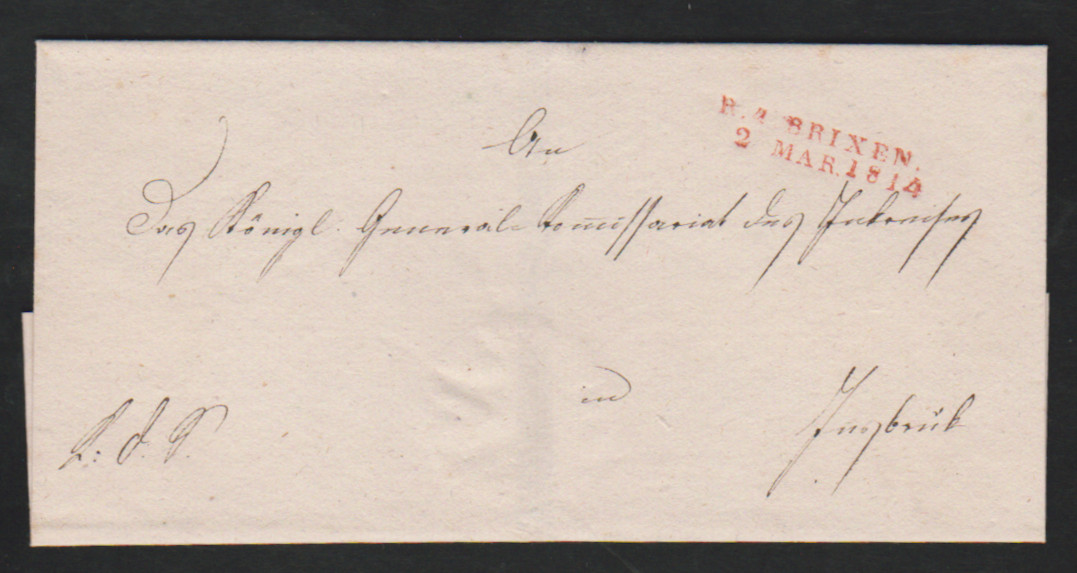 R. 4 BRIXEN.
2 MAR. 1814
An
Das Königl. General-Komissariat des Inkreises
in
Insbruk